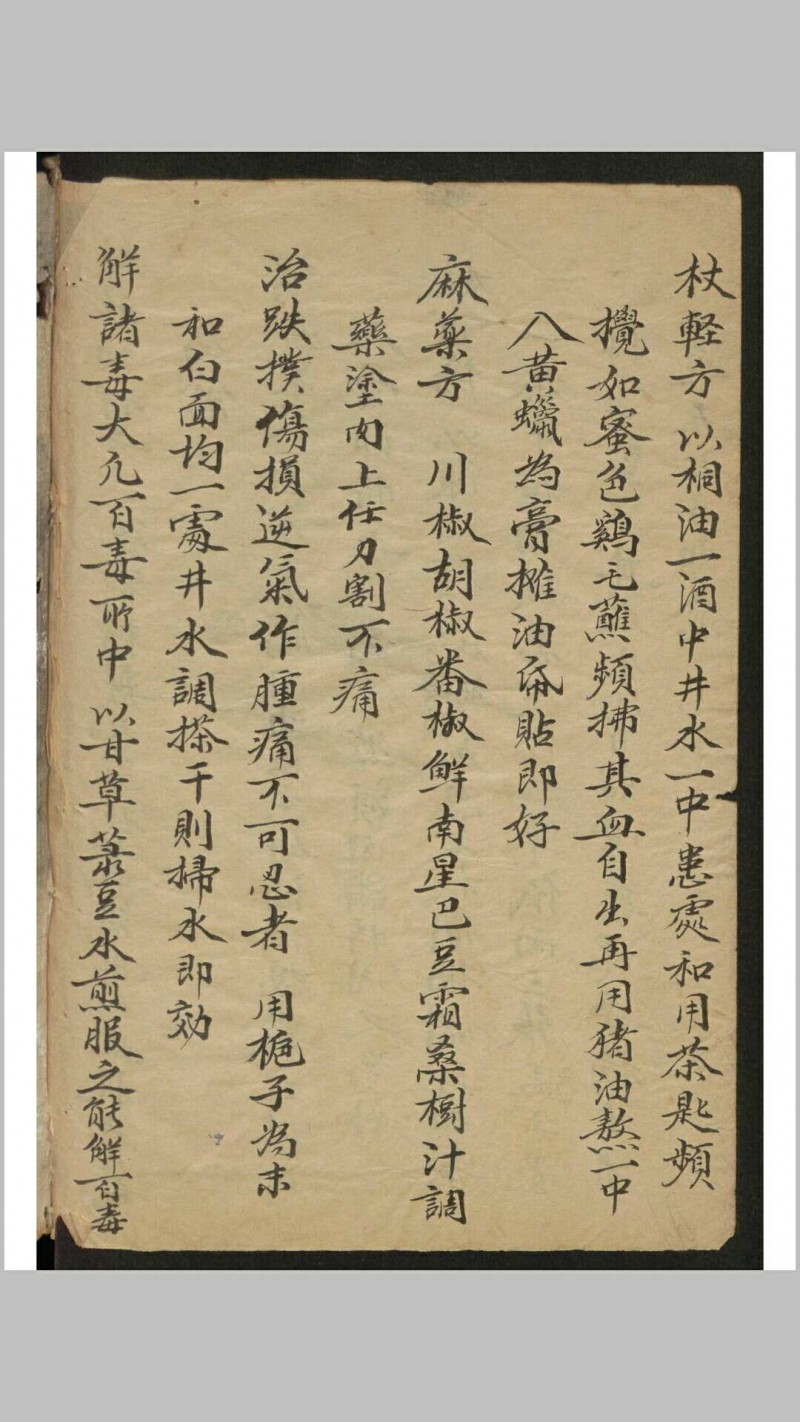 杖軽方 以桐油一酒中井水一中患處和用茶匙頻
攪如蜜色鷄毛蘸頻拂其血自出再用猪油熬一中
入黄蠟為膏攤油帋貼即好
麻薬方 川椒胡椒番椒鮮南星巴豆霜桑樹汁調
藥塗肉上任刀割不痛
治跌撲傷損逆氣作腫痛不可忍者 用梔子為末
和白面均一處井水調搽干則掃水即効
解諸毒大凡百毒所中 以甘草菉豆水煎服之能解百毒